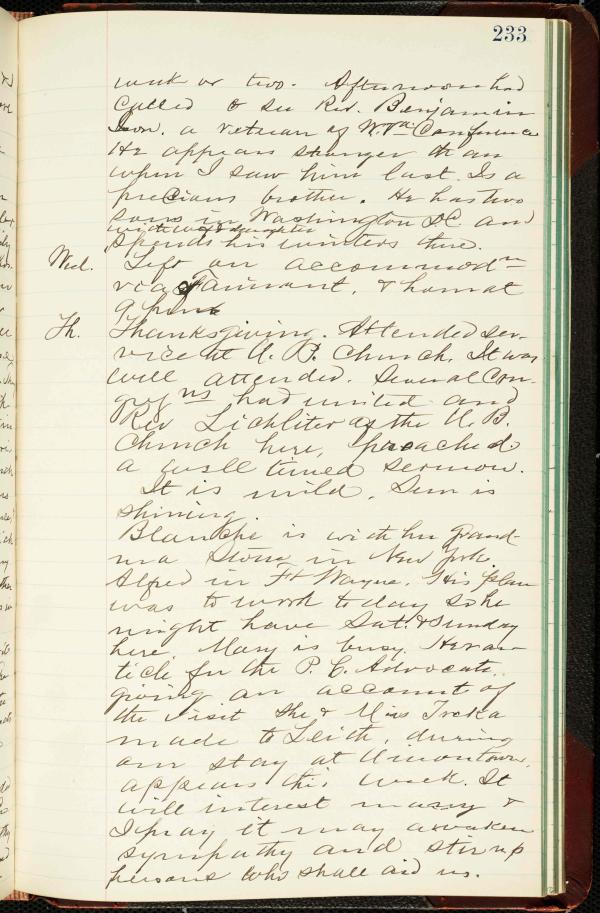 233
week or two. Afternoon had
called to see Rev. Benjamin
Ison. a veteran of W.Va. Conference
He appears stronger than
when I saw him last. Is a
precious brother. He has two
sons in Washington DC. and
with wife & daughter
spends his winters there.
Wed. Left on accommodn
via Fairmont. & home at
9 p.m.
Th. Thanksgiving. Attended ser-
vice at U. P. Church. It was
well attended. Several Con-
gregns had united and
Rev Lichliter of the U. B.
Church here, preached
a well timed sermon.
It is mild. Sun is
shining.
Blanche is with her grand-
ma Stone in New York.
Alfred in Ft Wayne. His plan
was to work today so he
might have Sat. & Sunday
here. Mary is busy. Her ar-
ticle for the P. C. Advocate,
giving an account of
the visit she & Miss
made to Leith, during
our stay at Uniontown,
appears this week. It
will interest many &
I pray it may awaken
sympathy and stir up
persons who shall aid us.